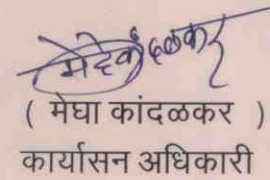 ( मेघा कांदळकर )
कार्यासन अधिकारी